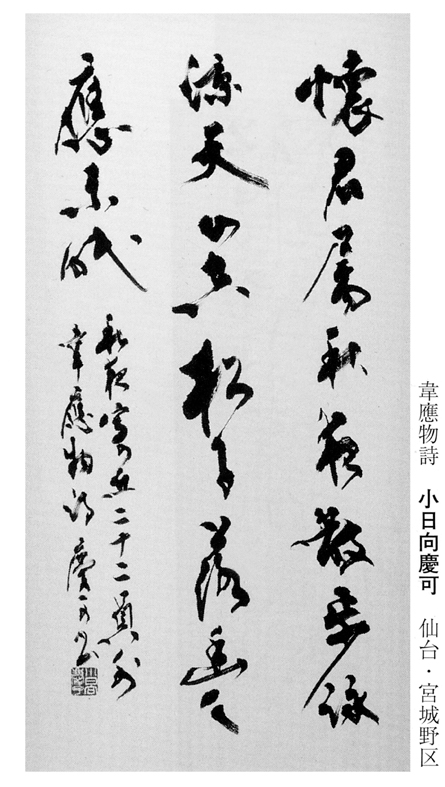 韋應物詩　小日向慶可　仙台・宮城野区
懷君属秋夜散歩詠
涼天山空松子落幽人
應未眠
秋夜寄丘二十二員外
韋應物詩 慶可書